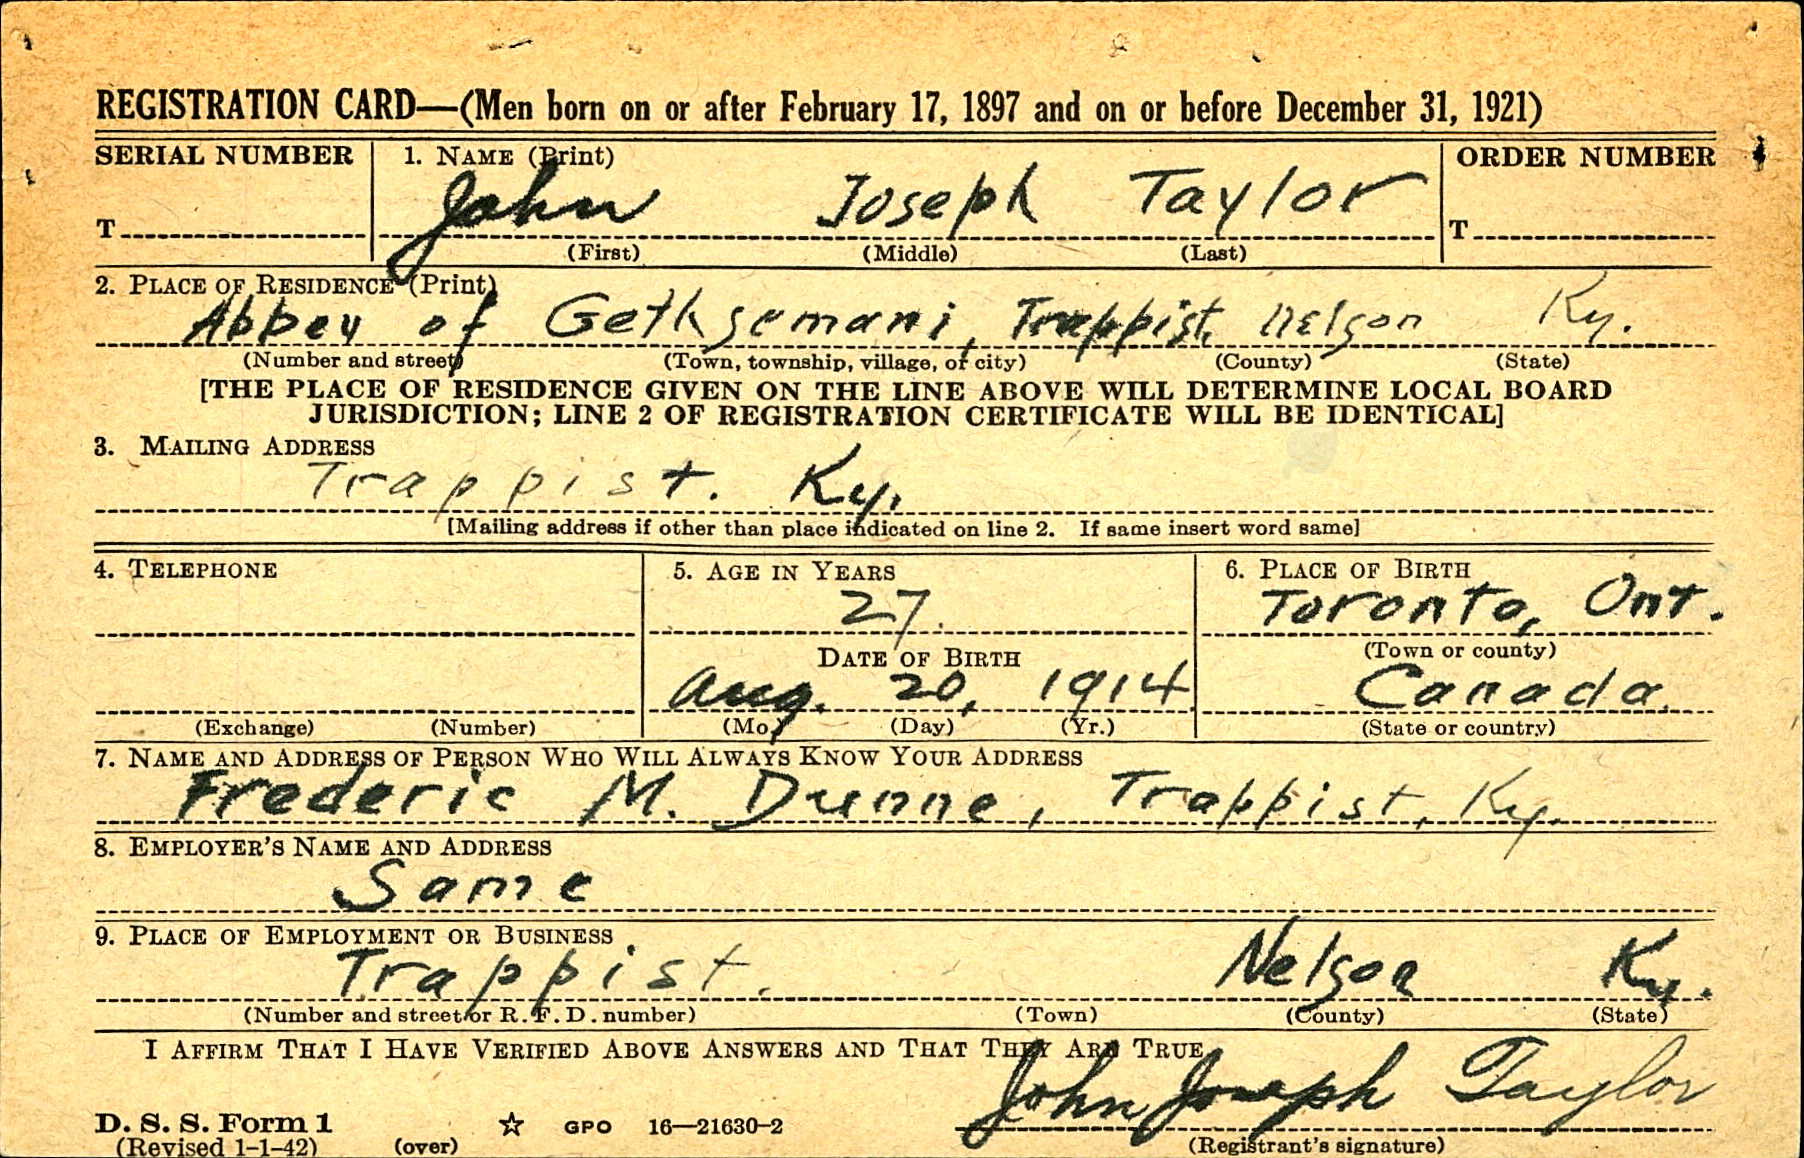 REGISTRATION CARD—(Men born on or after February 17, 1897 and on or before December 31, 1921)
SERIAL NUMBER 1. NAME (Print) ORDER NUMBER
T John Joseph Taylor T
(First) (Middle) (Last)
2. PLACE OF RESIDENCE (Print)
Abbey of Gethsemani, Trappist, Nelson Ky.
(Number and street) (Town, township, village, or city) (County) (State)
[THE PLACE OF RESIDENCE GIVEN ON THE LINE ABOVE WILL DETERMINE LOCAL BOARD
JURISDICTION; LINE 2 OF REGISTRATION CERTIFICATE WILL BE IDENTICAL]
3. MAILING ADDRESS
Trappist. Ky.
[Mailing address if other than place indicated on line 2. If same insert word same]
4. TELEPHONE 5. AGE IN YEARS 6. PLACE OF BIRTH
27. Toronto, Ont.
DATE OF BIRTH (Town or county)
Aug. 20, 1914 Canada.
(Exchange) (Number) (Mo.) (Day) (Yr.) (State or country)
7. NAME AND ADDRESS OF PERSON WHO WILL ALWAYS KNOW YOUR ADDRESS
Frederic M. Dunne, Trappist, Ky.
8. EMPLOYER'S NAME AND ADDRESS
Same
9. PLACE OF EMPLOYMENT OR BUSINESS
Trappist. Nelson Ky.
(Number and street or R. F. D. number) (Town) (County) (State)
I AFFIRM THAT I HAVE VERIFIED ABOVE ANSWERS AND THAT THEY ARE TRUE
John Joseph Taylor
D. S. S. Form 1 GPO 16—21630-2
(Revised 1-1-42) (over) (Registrant's signature)